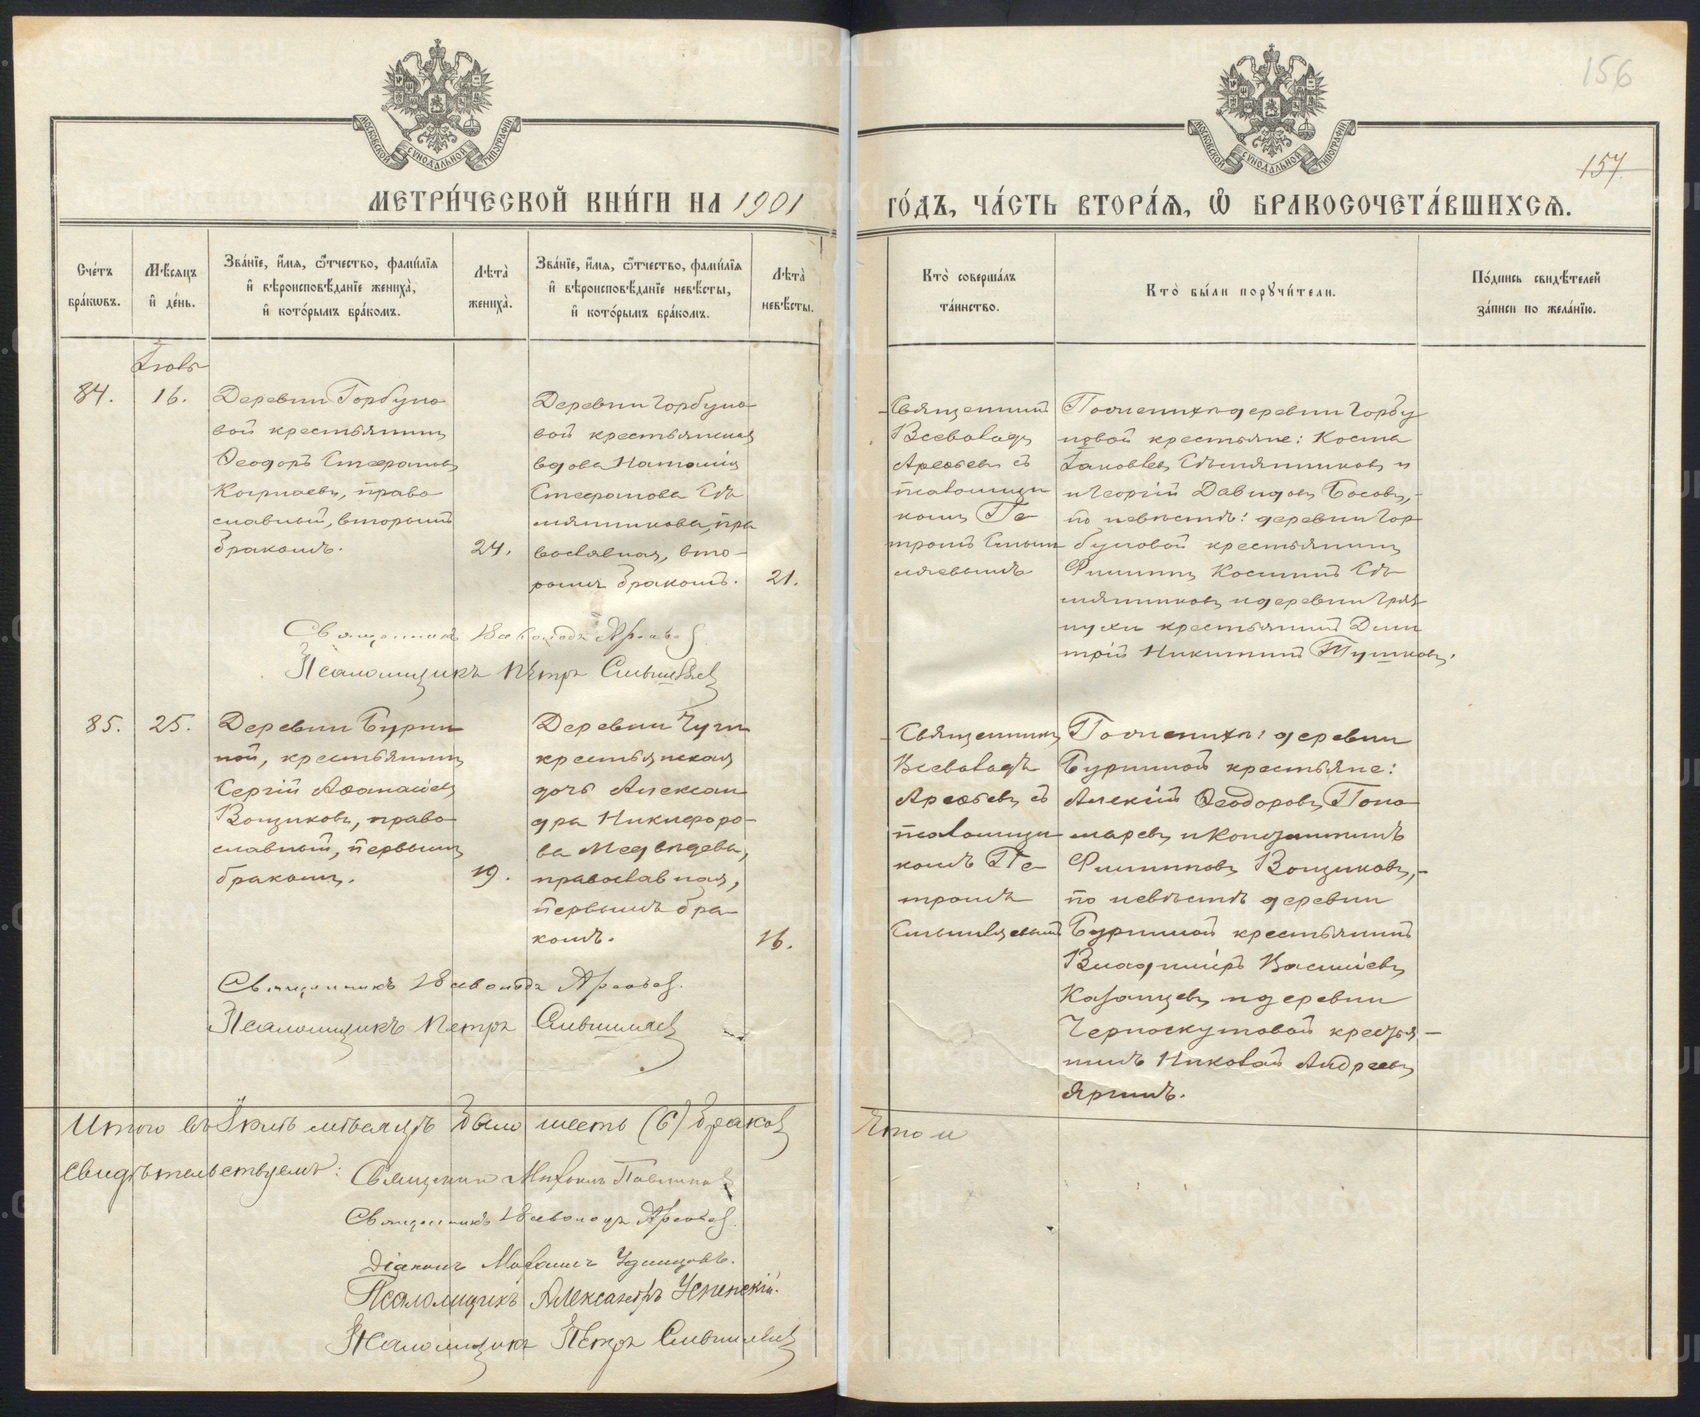 МЕТРИ́ЧЕСКОЙ КНИ́ГИ НА 1901
ГО́ДЪ, ЧА́СТЬ ВТОРА́Я, Ѽ БРАКОСОЧЕТА́ВШИХСЯ.
156
157
Сче́тъ бра́кѡвъ.
Мѣ́сяцъ и҆ де́нь.
Зва́нїе, и҆́мя, ѻ҆́тчество, фами́лїя
и҆ вѣроисповѣ́данїе жениха̀,
и҆ кото́рымъ бра́комъ.
Лѣта̀ жениха̀.
Зва́нїе, и҆́мя, ѻ҆́тчество, фами́лїя
и҆ вѣроисповѣ́данїе невѣ́сты,
и҆ кото́рымъ бра́комъ.
Лѣта̀ невѣ́сты.
Кто̀ соверша́лъ та́инство.
Кто̀ бы́ли порꙋчи́тели.
По́дпись свидѣ́телей за́писи по жела́нїю.
84.
16.
Деревни Горбуно
вой крестьянинъ
Ѳеодоръ Стефановъ
право
славный, вторымъ
бракомъ.
24.
Деревни Горбуно
вой крестьянская
вдова Наталія
Стефанова Сѣ
мянникова, пра
вославная, вто-
рымъ бракомъ.
21.
Священникъ
Всеволодъ
Арефьевъ съ
псаломщи
комъ Пе
тромъ
По женихѣ деревни Горбу
новой крестьяне: Косма
Іаковлевъ Сѣмянниковъ и
Георгій Давидовъ Босовъ,-
по невѣстѣ: деревни Гор
буновой крестьянинъ
Филиппъ Косминъ Сѣ
мянниковъ и деревни Гряз
нухи крестьянинъ Дими
трій Никитинъ Тушковъ.
Священникъ Всеволодъ Арефьев
Псаломщикъ Петръ
85.
25.
Деревни Бурни
ной, крестьянинъ
Сергій Аѳанасіевъ
Вощиковъ, право
славный, первымъ
бракомъ.
19.
Деревни
крестьянская
дочь Алексан
дра Никифоро-
ва Медвѣдева,
православная,
первымъ бра-
комъ.
16.
Священникъ
Всеволодъ
Арефьевъ съ
псаломщи
комъ Пе
тромъ
По женихѣ: деревни
Бурниной крестьяне:
Алексій Ѳеодоровъ Поно
маревъ и Константинъ
Филипповъ Вощиковъ,-
по невѣстѣ деревни
Бурниной крестьянинъ
Владиміръ Василіевъ
Казанцевъ и деревни
Черноскутовой крестья-
нинъ Николай Андреевъ
Яринъ.
Священникъ Всеволодъ Арефьев
Псаломщикъ Петръ
Итого въ Іюлѣ мѣсяцѣ было шесть (6) браков
Въ том
свидѣтельствуемъ:
Священник Михаилъ
Священникъ Всеволодъ Арефьев
Діаконъ Михаилъ Удинцовъ.
Псаломщикъ Александръ Успенскій.
Псаломщикъ Петръ